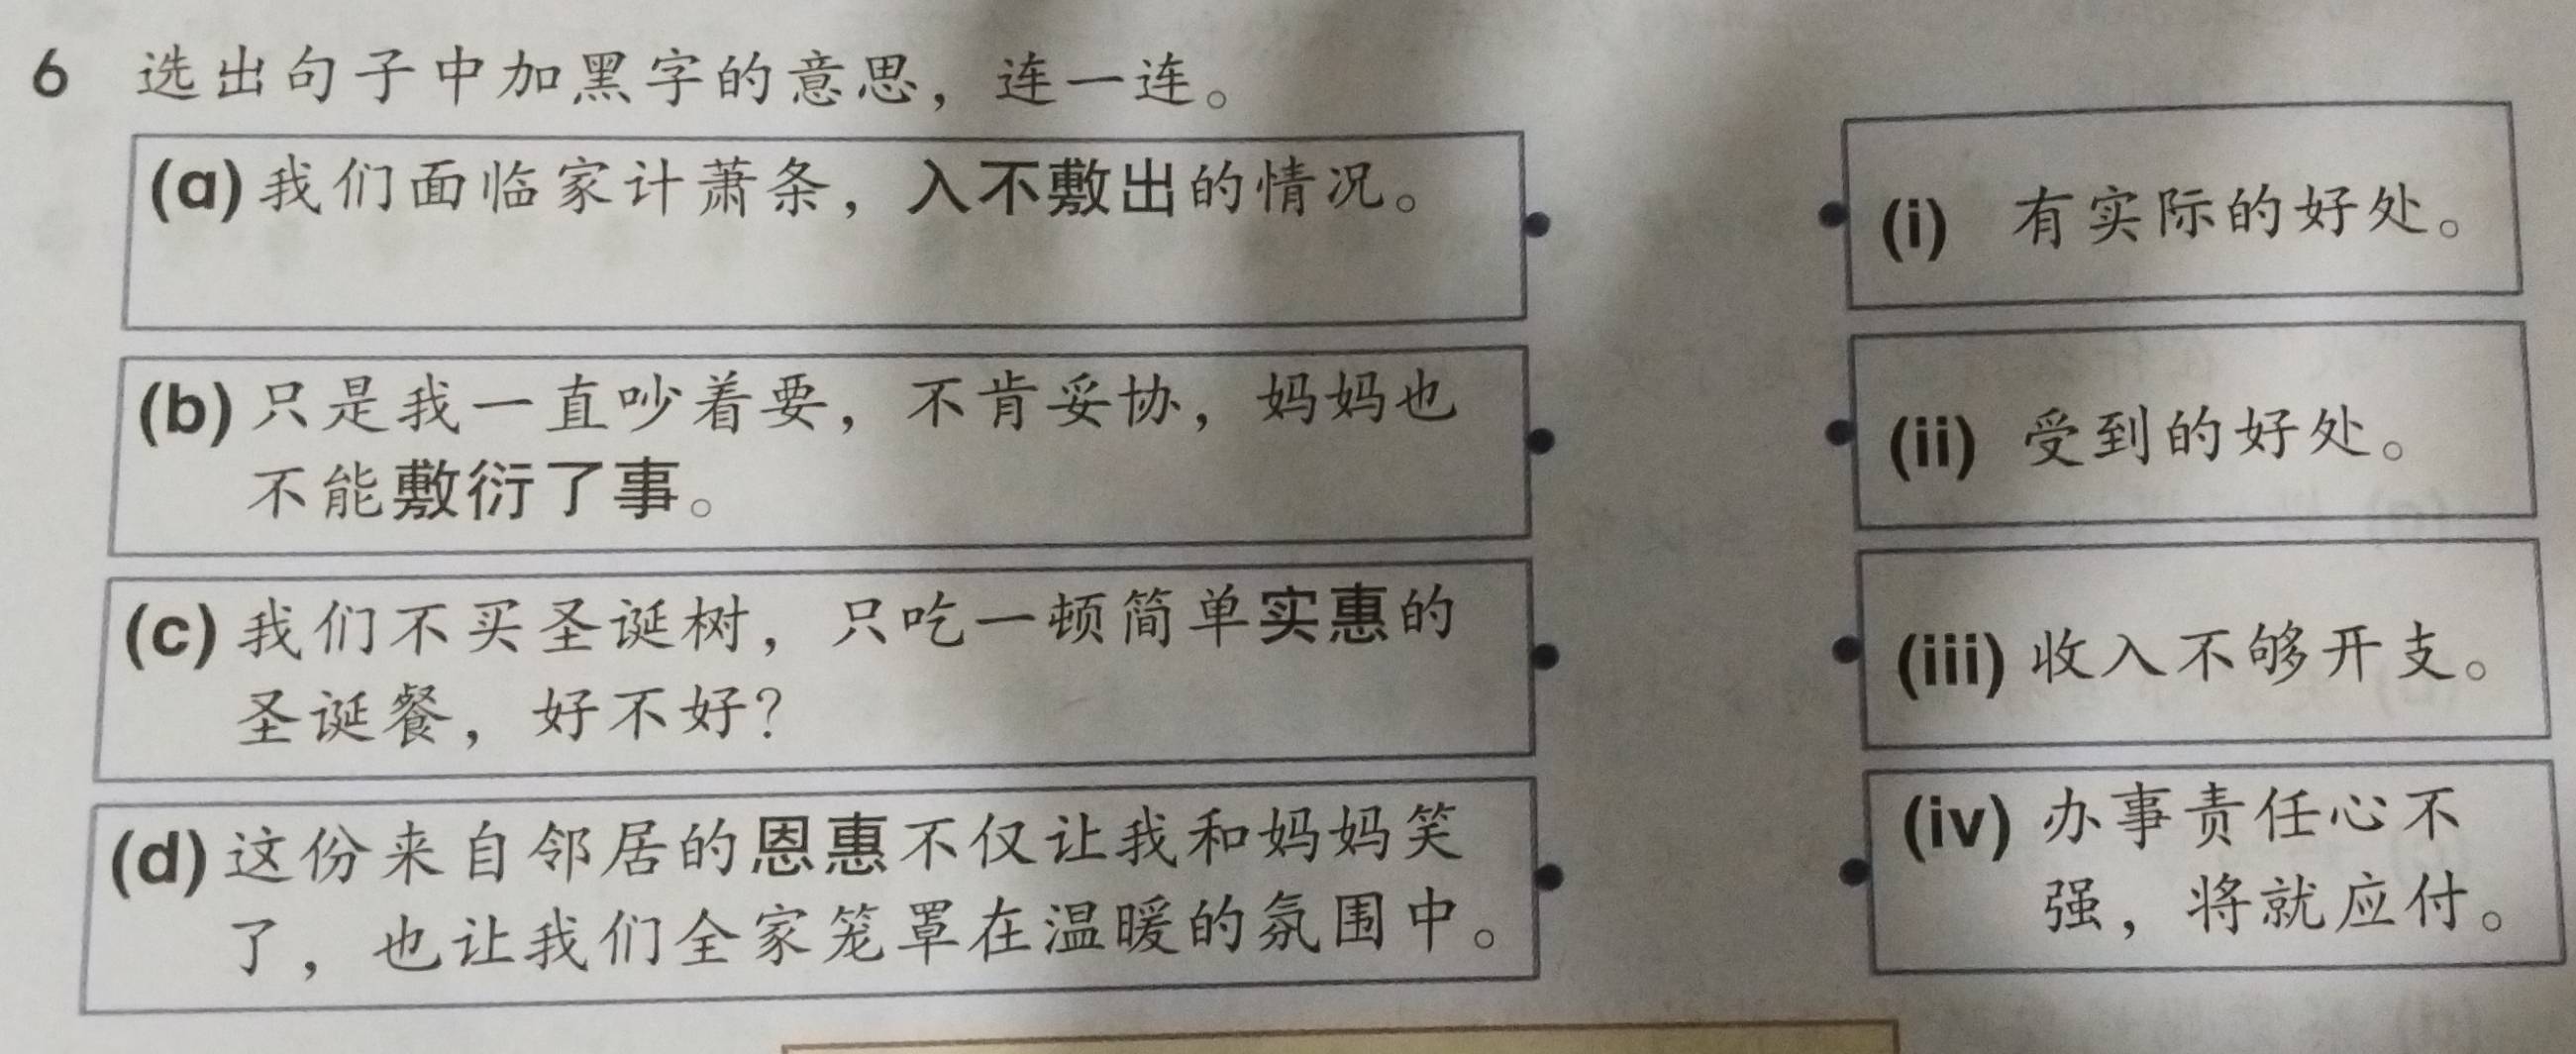 6 选出句子中加黑字的意思，连一连。
(a) 我们面临家计萧条，入不敷出的情况。
(i) 有实际的好处。
(b) 只是我一直吵着要，不肯妥协，妈妈也
不能敷衍了事。
(ii) 受到的好处。
(c) 我们不买圣诞树，只吃一顿简单实惠的
圣诞餐，好不好？
(iii) 收入不够开支。
(d) 这份来自邻居的恩惠不仅让我和妈妈笑
了，也让我们全家笼罩在温暖的氛围中。
(iv) 办事责任心不
强，将就应付。